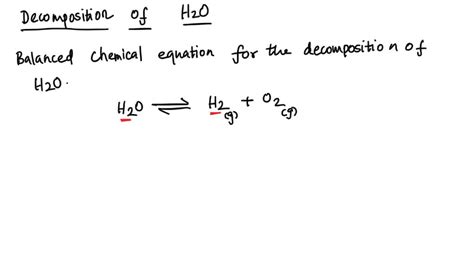 Decomposition of H2O
Balanced chemical equation for the decomposition of
H2O.
H2O ⇌ H2(g) + O2(g)